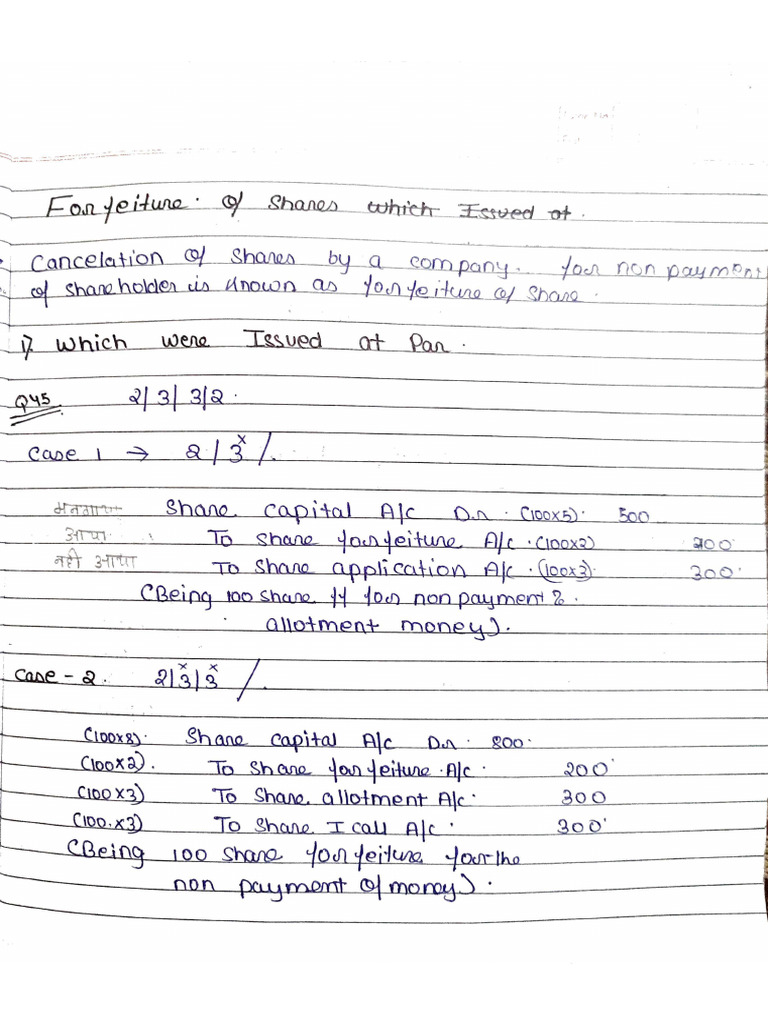 Forfeiture of Shares which Issued at.
Cancelation of Shares by a company. for non payment
of shareholder is known as forfeiture of share.
1) which were Issued at Par.
Q45 2/3/3/2.
Case 1 → 2/3ˣ/.
मनगाया Share Capital A/c Dr. (100x5). 500
आया To share forfeiture A/c. (100x2) 200
नही आया To Share application A/c. (100x3). 300
(Being 100 share ff for non payment &.
allotment money).
Case - 2. 2/3ˣ/3ˣ/.
(100x8). Share capital A/c Dr. 800.
(100x2). To Share forfeiture A/c. 200
(100x3) To Share allotment A/c. 300
(100.x3) To Share I call A/c. 300
(Being 100 share forfeiture for the
non payment of money).